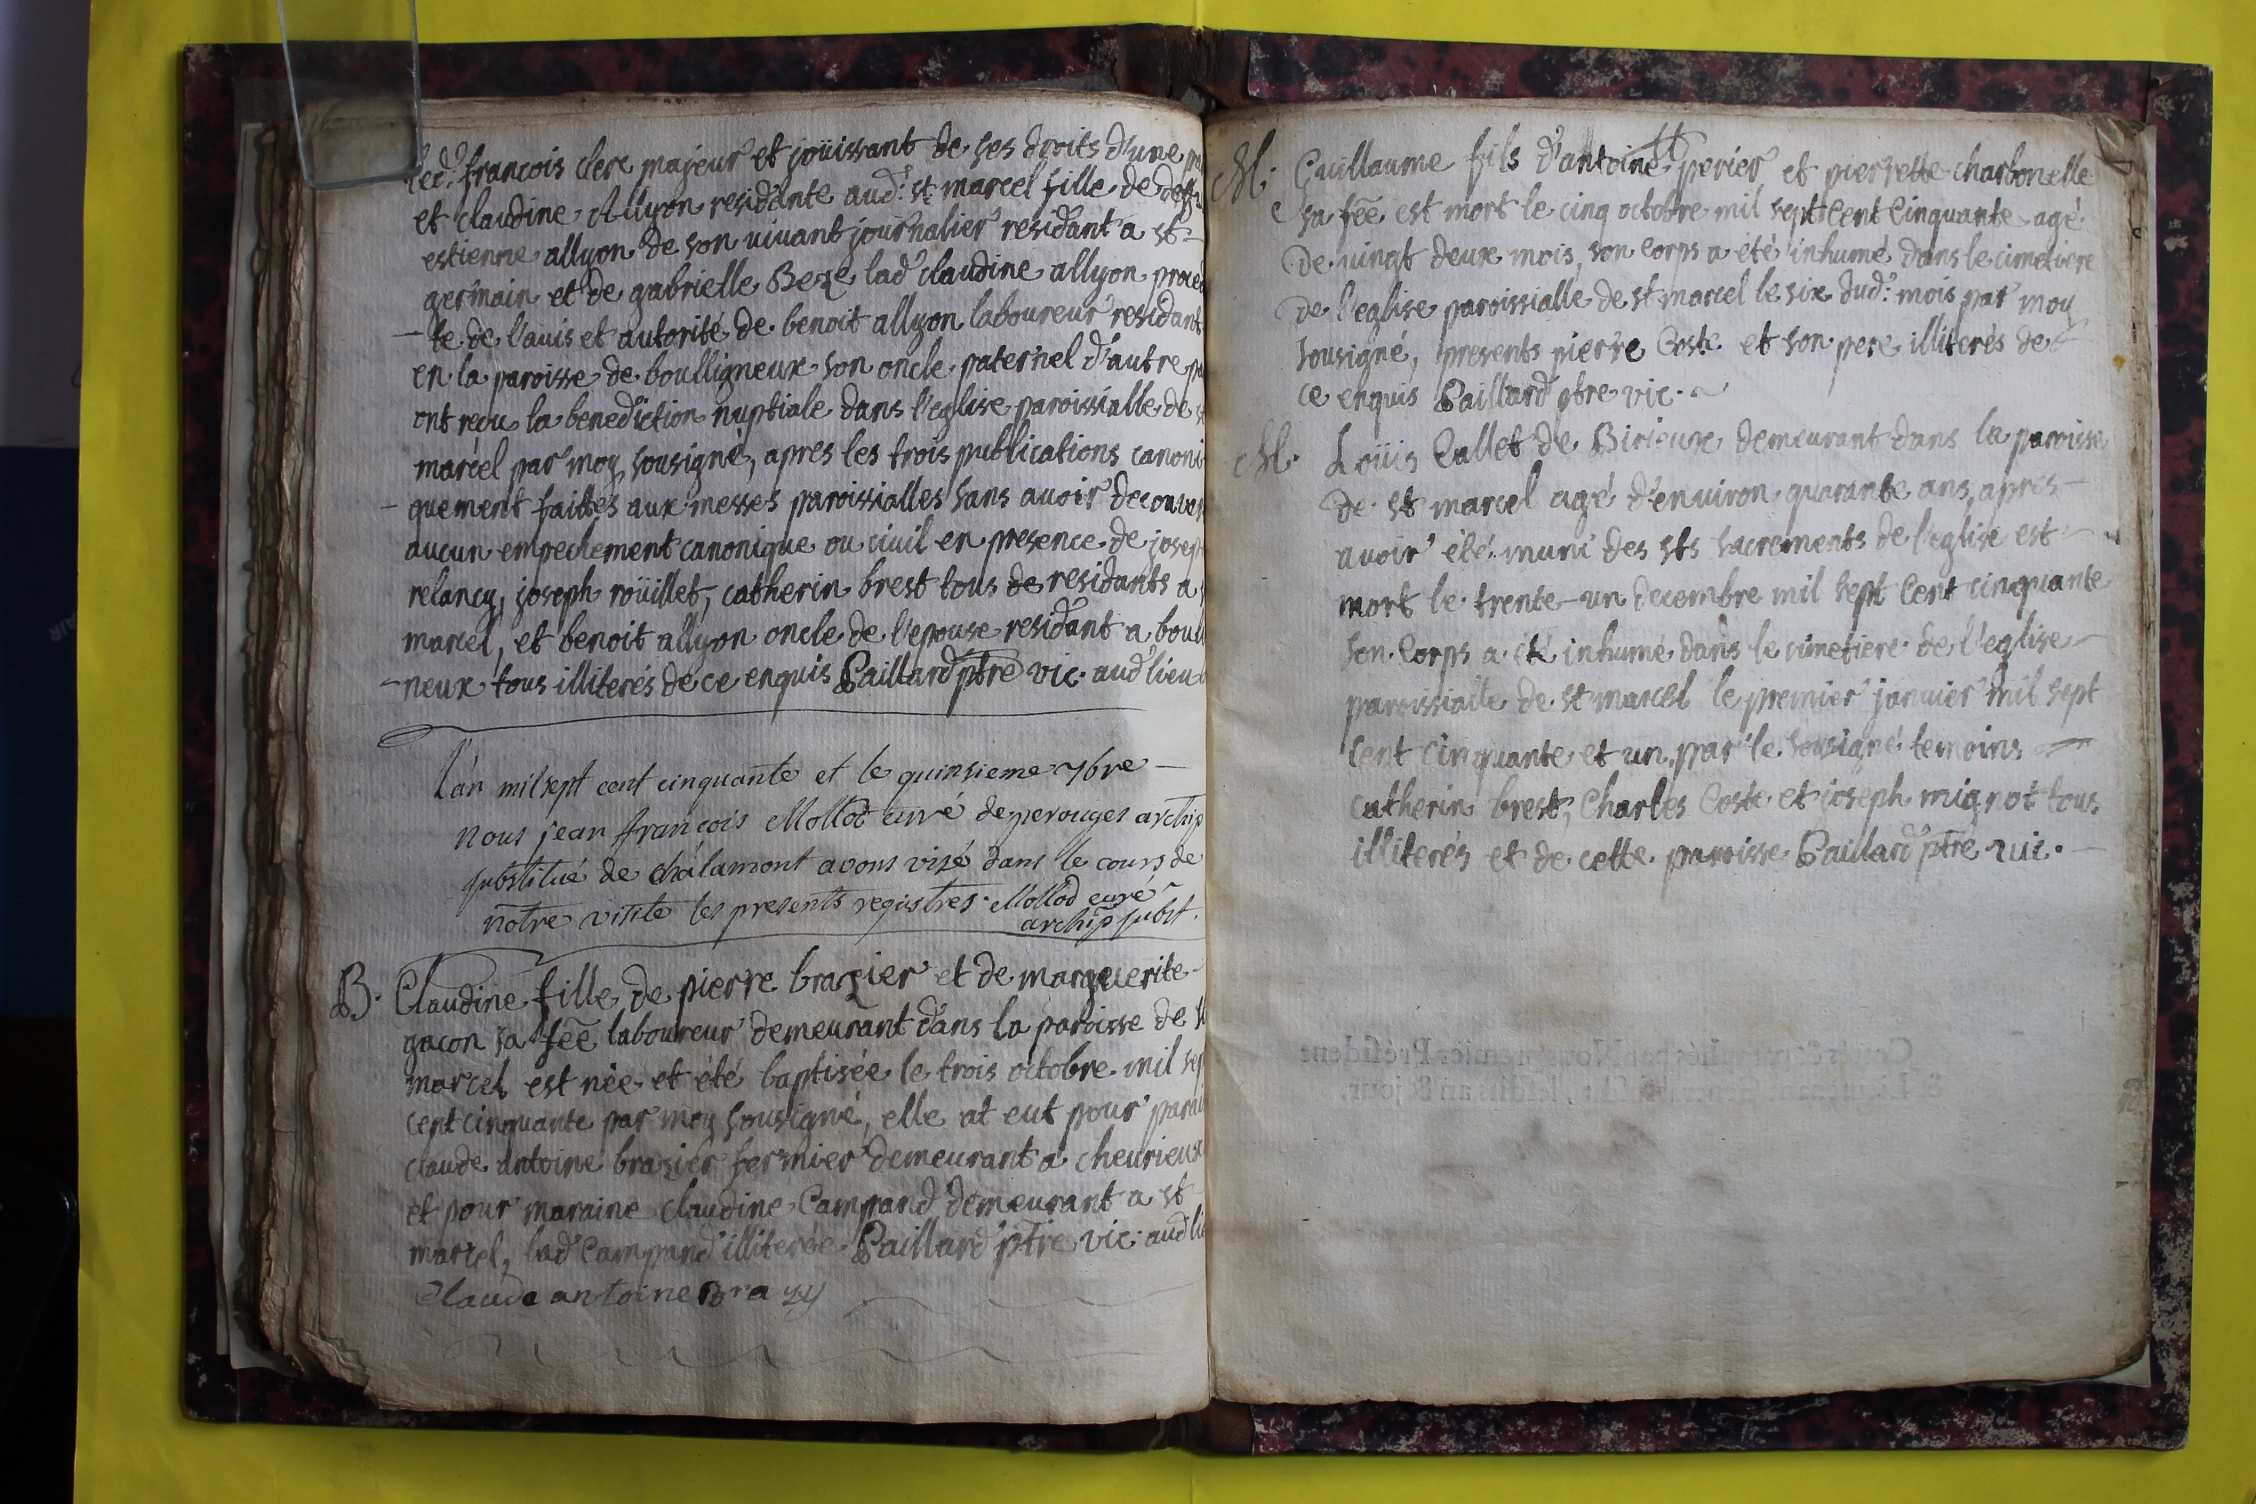 led. francois clerc majeur et joüissant de ses droits d'une
et claudine allyon residante aud. st marcel fille de
estienne allyon de son vivant journalier residant a st
germain et de gabrielle Beze lad claudine allyon
te de l'avis et autorité de benoit allyon laboureur residant
en la paroisse de boulligneux son oncle paternel d'autre
ont recu la benediction nuptiale dans l'eglise paroissialle de
marcel par moy sousigné, apres les trois publications canoni
- quement faittes aux messes paroissialles sans avoir
aucun empechement canonique ou civil en presence de josep
relancy, joseph roüillet, catherin brest tous de residants a
marcel, et benoit allyon oncle de l'epouse residant a
- neux tous illiterés de ce enquis Paillard ptre vic. aud lieu
L'an mil sept cent cinquante et le quinsieme 7bre
nous jean françois Mollod curé de perouges archip
substitué de chalamont avons visé dans le cours de
notre visite les presents registres. Mollod curé
archip subst.
B. Claudine fille de pierre brazier et de marguerite
gacon sa fẽe laboureur demeurant dans la paroisse de
marcel est née et été baptisée le trois octobre mil sep
cent cinquante par moy sousigné, elle at eut pour
claude antoine brazier fermier demeurant a chevrieux
et pour maraine claudine Campand demeurant a st
marcel, lad Campand illiterée Paillard ptre vic. aud
Claude antoine
M. Guillaume fils d'antoine perier et pierrette charbonelle
sa fẽe est mort le cinq octobre mil sept cent cinquante agé
de vingt deux mois, son corps a été inhumé dans le cimetiere
de l'eglise paroissialle de st marcel le six dud: mois par moy
sousigné, presents pierre Coste et son pere illiterés de
ce enquis Paillard ptre vic.
M. Loüis Callet de Birieux demeurant dans la paroisse
de st marcel agé d'environ quarante ans, apres
avoir été muni des sts sacrements de l'eglise est
mort le trente-un decembre mil sept cent cinquante
son corps a été inhumé dans le cimetiere de l'eglise
paroissialle de st marcel le premier janvier mil sept
cent cinquante et un par le sousigné temoins
catherin brest, Charles Coste et joseph mignot tous
illiterés et de cette paroisse Paillard ptre vic.